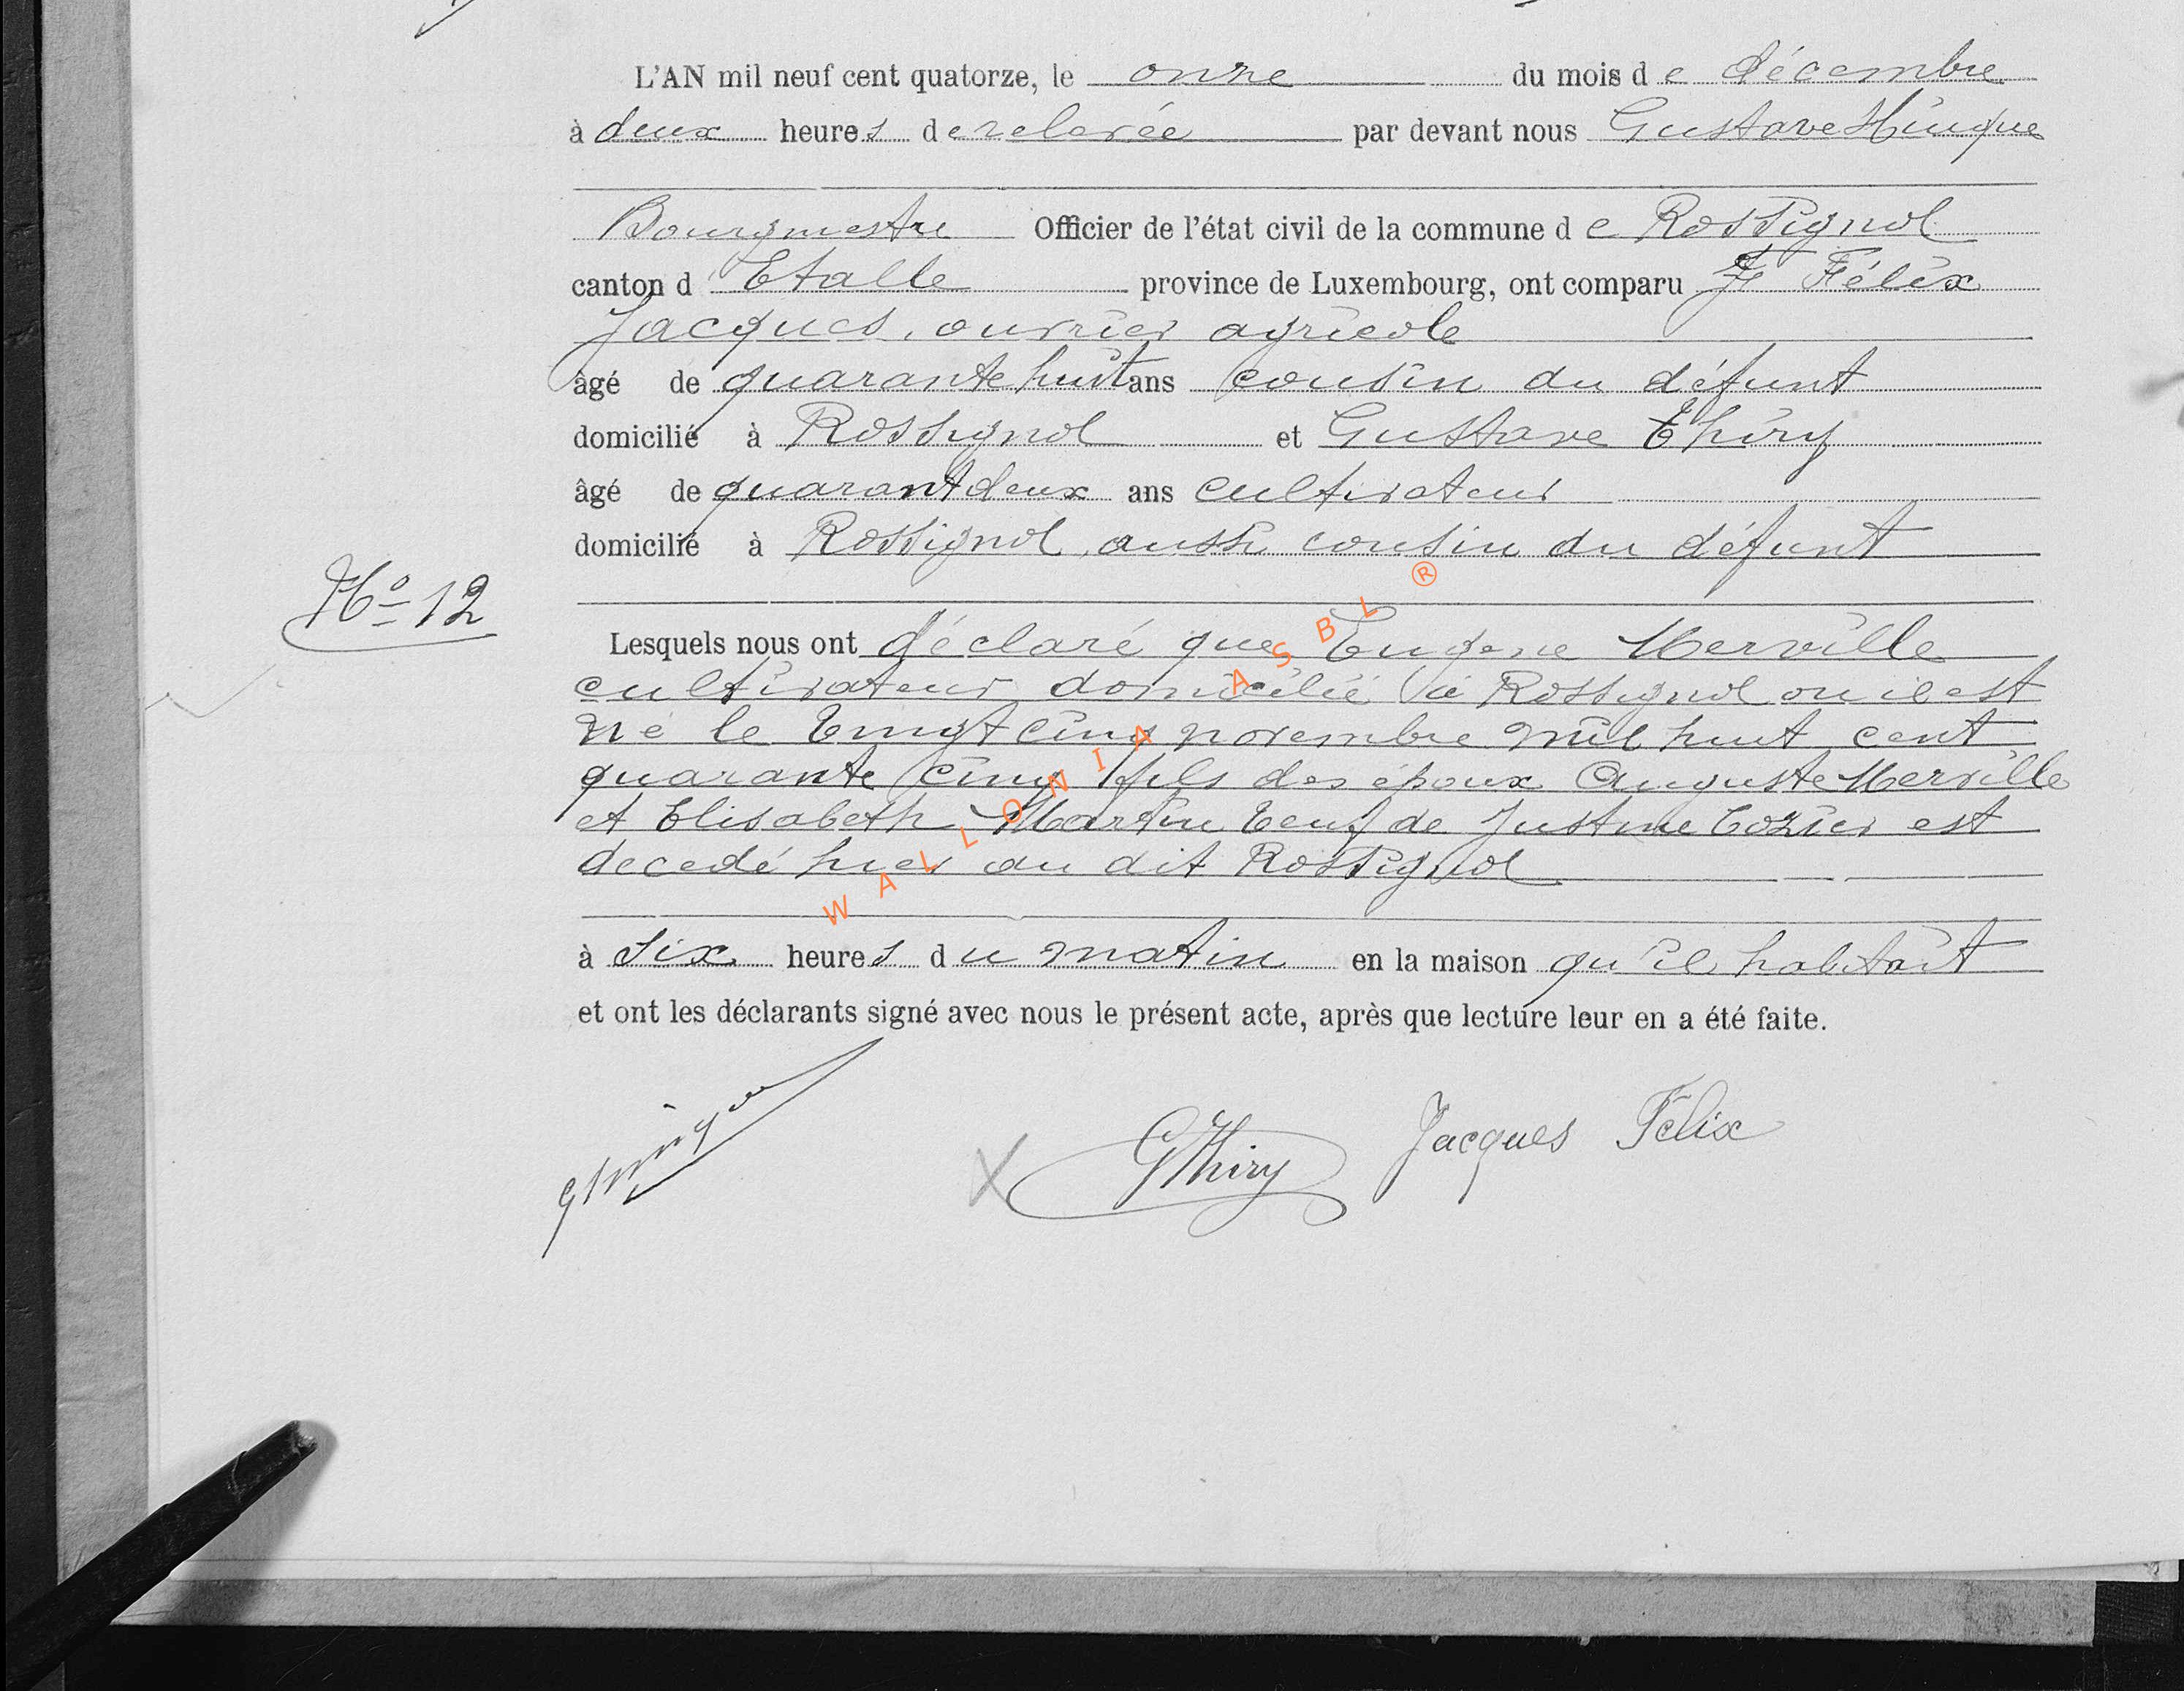 L'AN mil neuf cent quatorze, le onze du mois de décembre
à deux heures de relevée par devant nous Gustave Hinque
Bourgmestre Officier de l'état civil de la commune de Rossignol
canton d'Etalle province de Luxembourg, ont comparu Félix
Jacques, ouvrier agricole
âgé de quarante huit ans cousin du défunt
domicilié à Rossignol et Gustave Thiry
âgé de quarant deux ans cultivateur
domicilié à Rossignol, aussi cousin du défunt
No 12
Lesquels nous ont déclaré que Eugene Herville
cultivateur domicilié à Rossignol ou il est
né le vingt cinq novembre mil huit cent
quarante cinq fils des époux Auguste Herville
et Elisabeth Martin veuf de Justine Cozier est
decedé hier au dit Rossignol
à six heures du matin en la maison qu'il habitait
et ont les déclarants signé avec nous le présent acte, après que lecture leur en a été faite.
GHinque
GThiry
Jacques Félix
WALLONIA ASBL ®